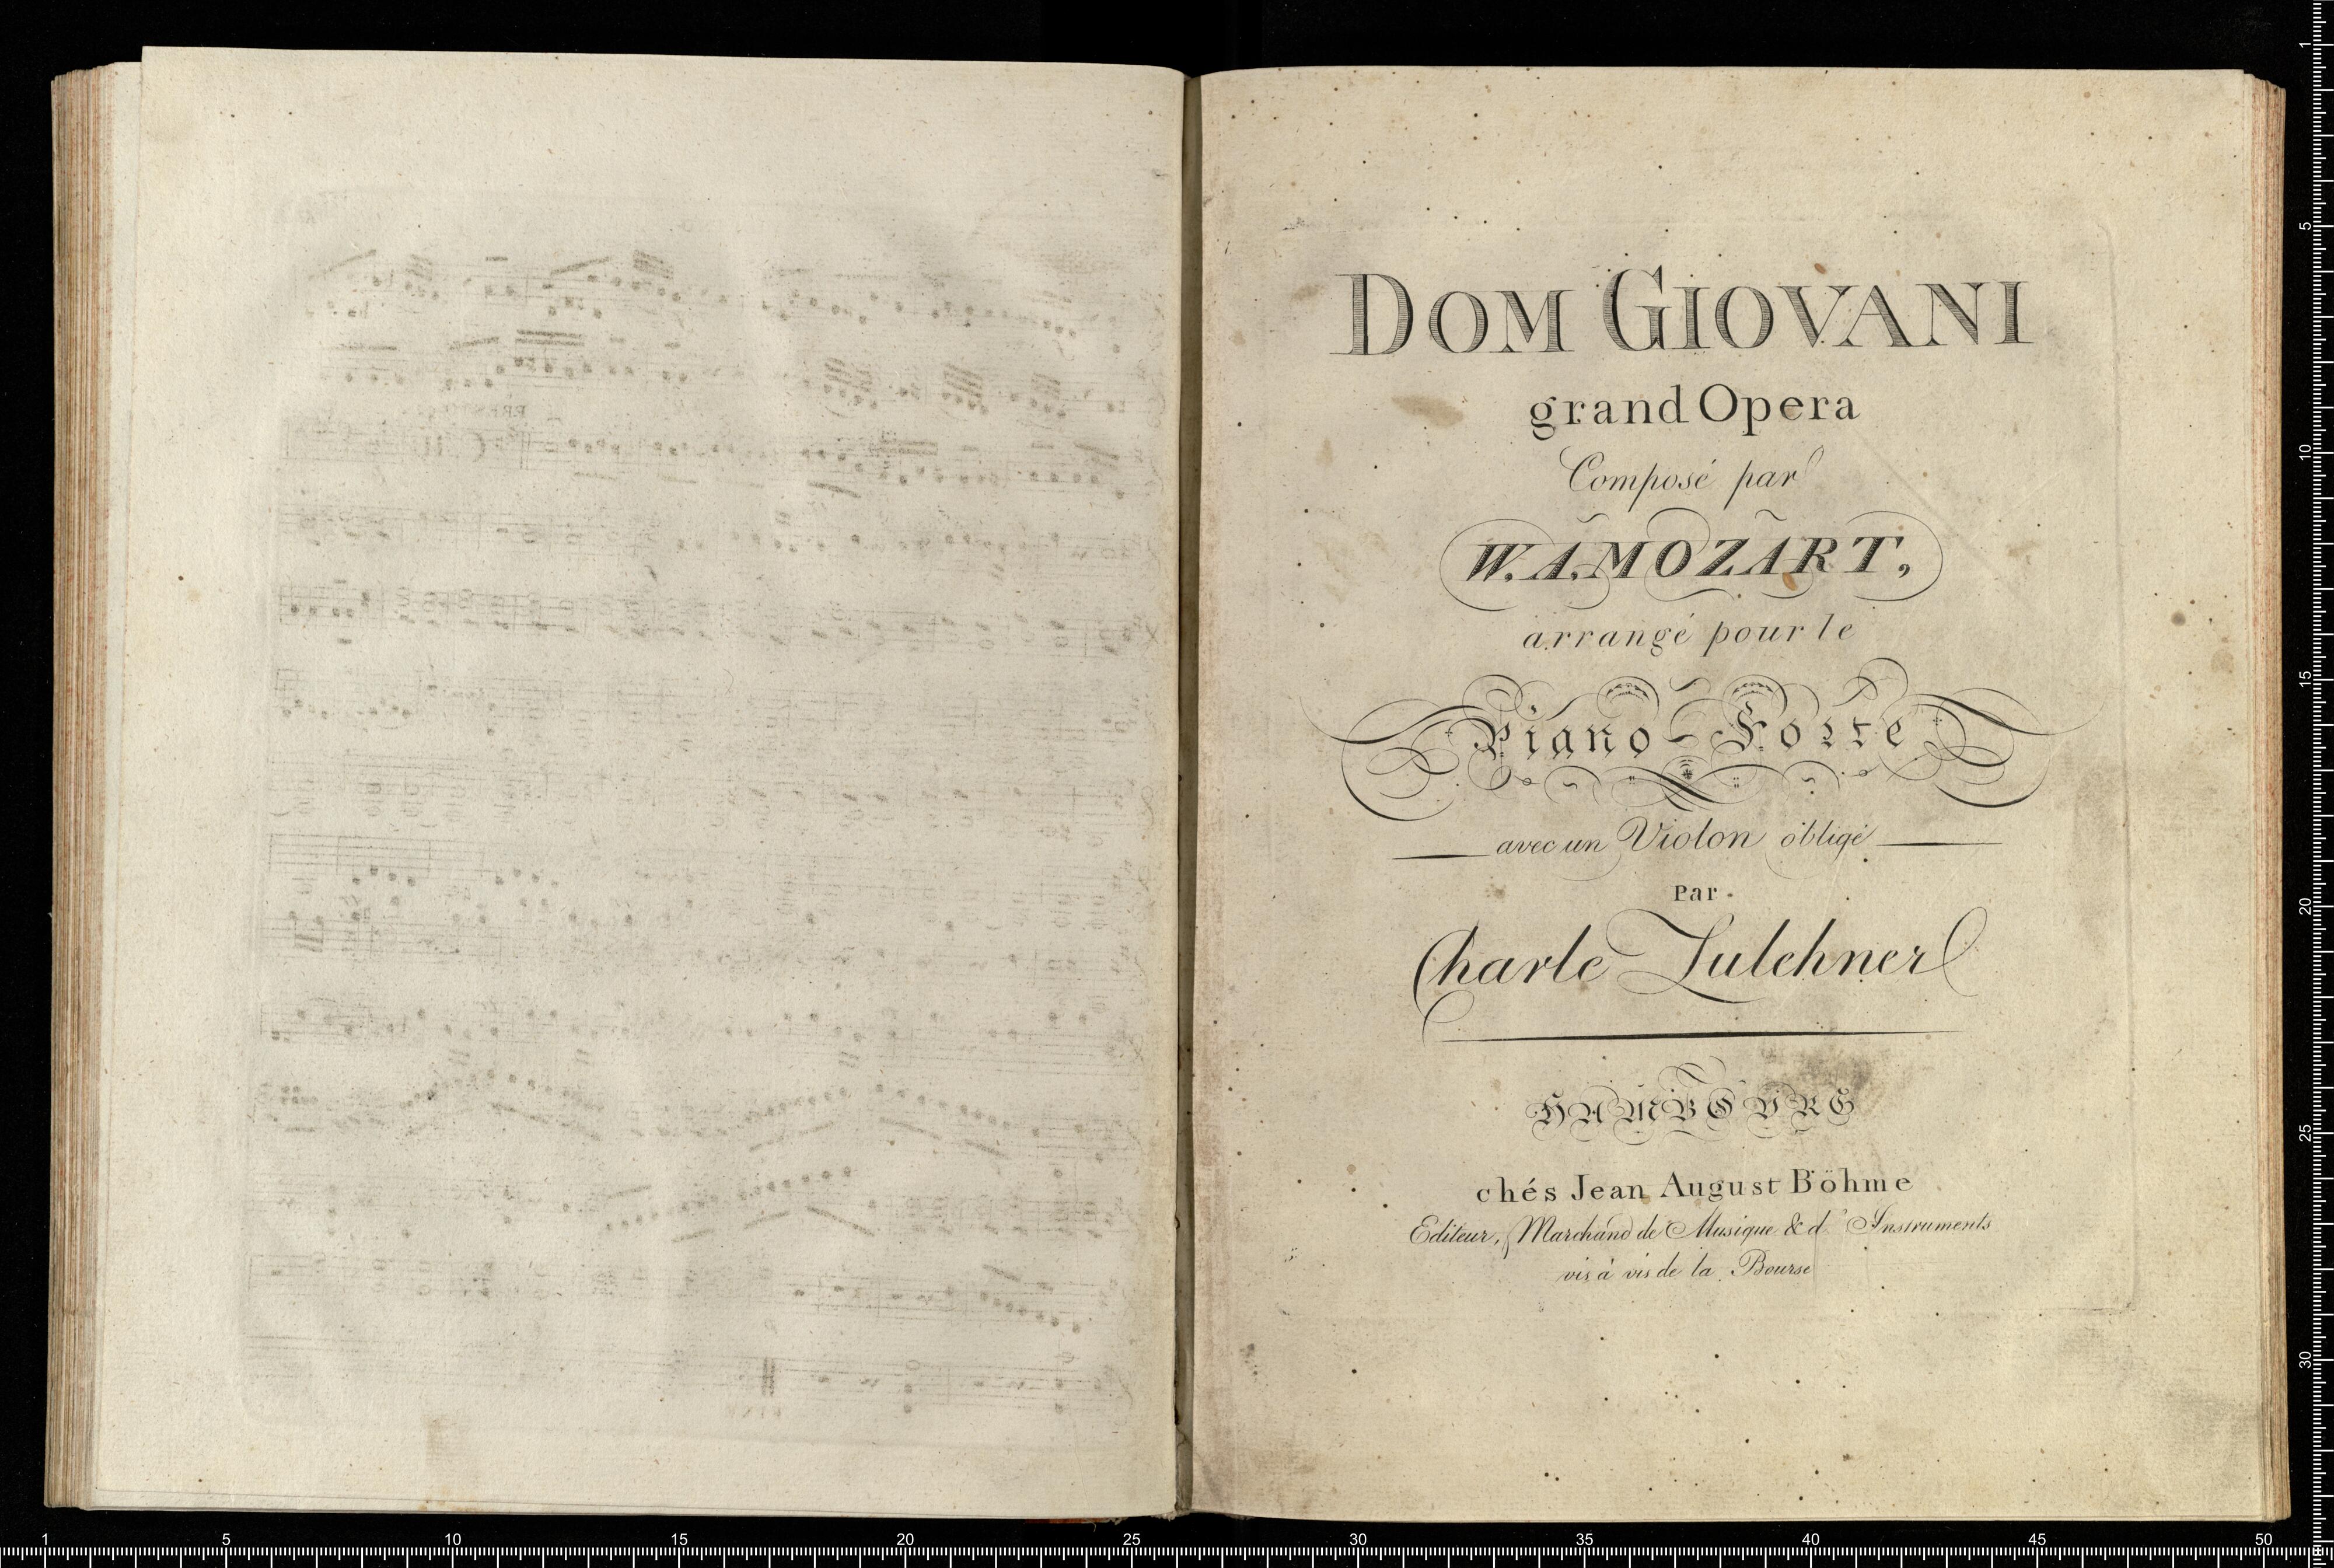 DOM GIOVANI
grand Opera
Composé par
W. A. MOZART,
arrangé pour le
Piano-Forte
avec un Violon obligé
Par
Charle Zulehner
HAMBOURG
chés Jean August Böhme
Editeur, Marchand de Musique & d'Instruments
vis à vis de la Bourse
1 5 10 15 20 25 30 35 40 45 50
1
5
10
15
20
25
30